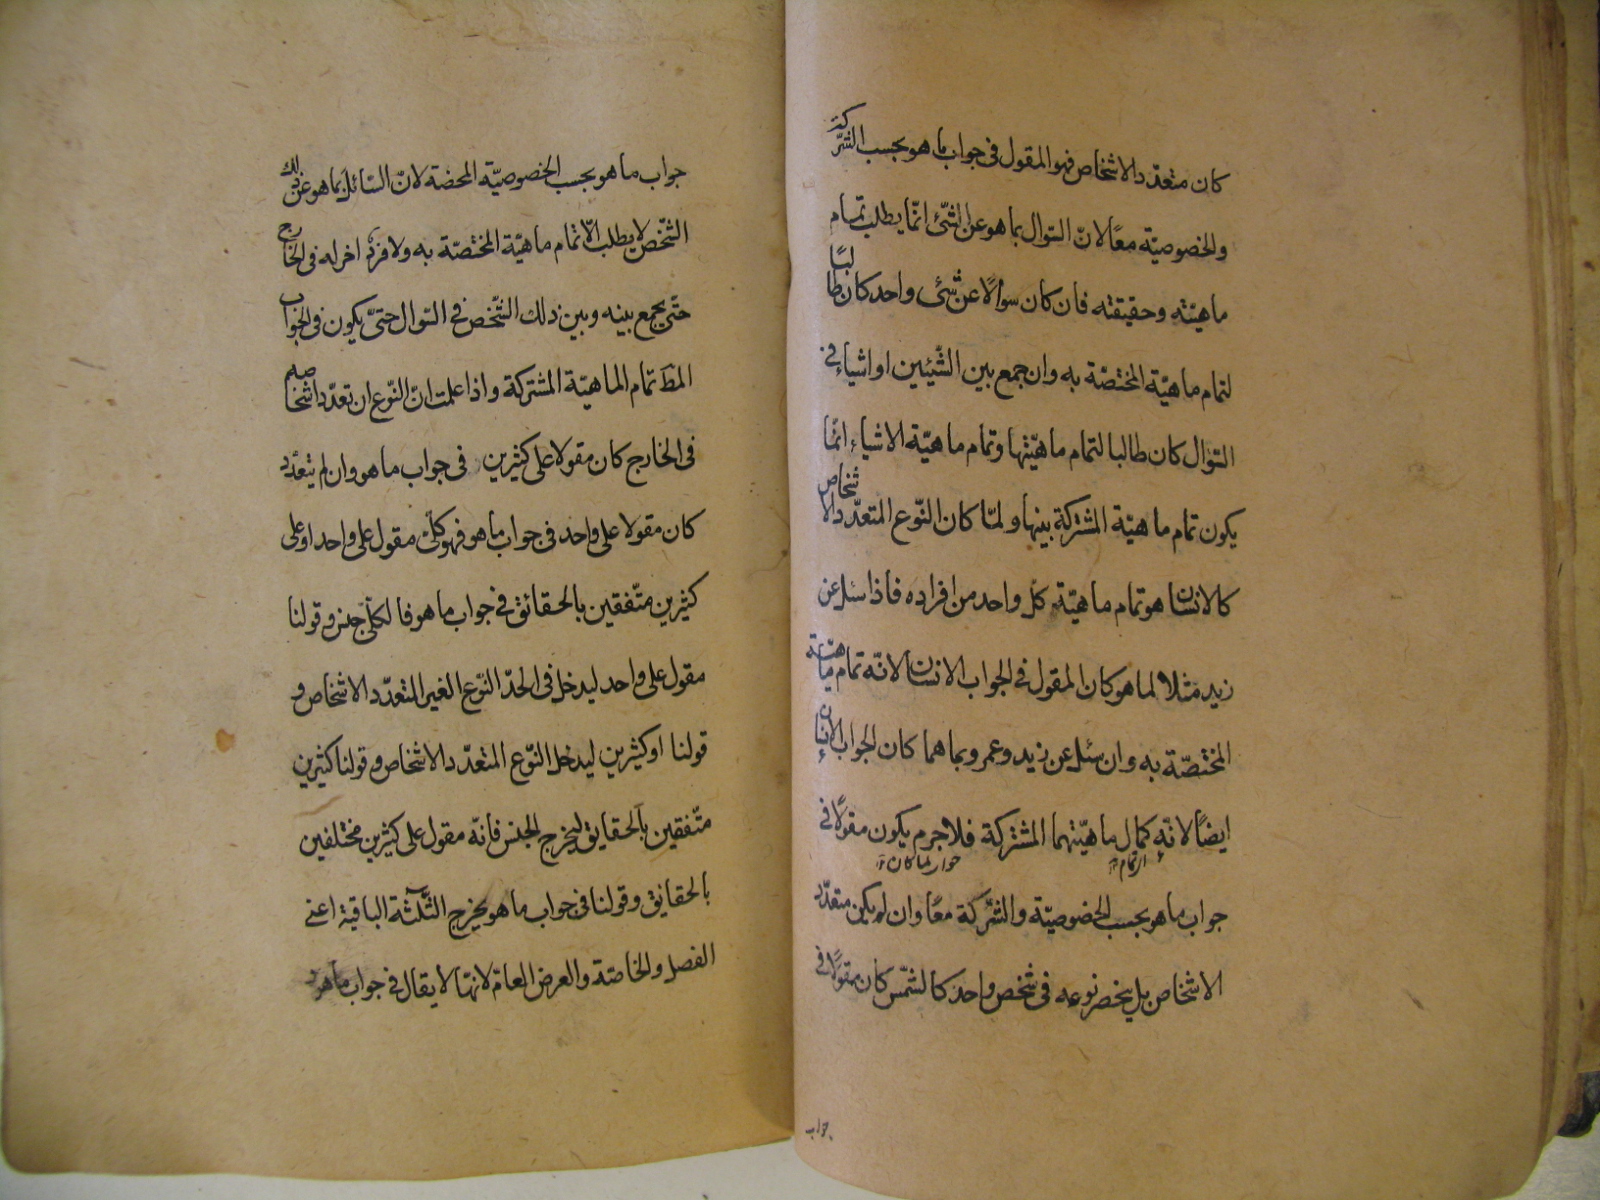 كان متعدّد الاشخاص فهو المقول فى جواب ما هو بحسب الشركة
والخصوصيّة معًا لانّ السّوال بما هو عن الشّئ انّما يطلب تمام
ماهيّته وحقيقته فان كان سوالًا عن شئ واحد كان طالبًا
لتمام ماهيّة المختصّة به وان جمع بين الشّيئين او اشياء فى
السّوال كان طالبا لتمام ماهيّتها وتمام ماهيّة الاشياء انّما
يكون تمام ماهيّة المشتركة بينها ولمّا كان النّوع المتعدّد الاشخاص
كالانسان هو تمام ماهيّة كلّ واحد من افراده فاذا سئل عن
زيد مثلا لما هو كان المقول فى الجواب الانسان لانّه تمام ماهيّة
المختصّة به وان سئل عن زيد وعمرو بما هما كان الجواب الانسان
ايضًا لانّه كمال ماهيّتهما المشتركة فلا جرم يكون مقولًا فى
جواب ما هو بحسب الخصوصيّة والشّركة معًا وان لم يكن متعدّد
الاشخاص بل ينحصر نوعه فى شخص واحد كالشّمس كان مقولًا فى
جواب
جواب ما هو بحسب الخصوصيّة المحضة لانّ السّائل بما هو عن ذلك
الشّخص لا يطلب الّا تمام ماهيّة المختصّة به ولا فرد اخر له فى الخارج
حتّى يجمع بينه وبين ذلك الشّخص فى السّوال حتىّ يكون فى الجواب
المط تمام الماهيّة المشتركة واذا علمت انّ النّوع ان تعدّد اشخاصه
فى الخارج كان مقولا على كثيرين فى جواب ما هو وان لم يتعدّد
كان مقولا على واحد فى جواب ما هو فهو كلّىّ مقول على واحد او على
كثيرين متّفقين بالحقائق فى جواب ما هو فالكلّىّ جنس وقولنا
مقول على واحد ليدخل فى الحدّ النّوع الغير المتعدّد الاشخاص و
قولنا او كثيرين ليدخل النّوع المتعدّد الاشخاص وقولنا كثيرين
متّفقين بالحقايق ليخرج الجنس فانّه مقول على كثيرين مختلفين
بالحقائق وقولنا فى جواب ما هو يخرج الثّلثة الباقية اعنى
الفصل والخاصّة والعرض العامّ لانّها لا يقال فى جواب ما هو